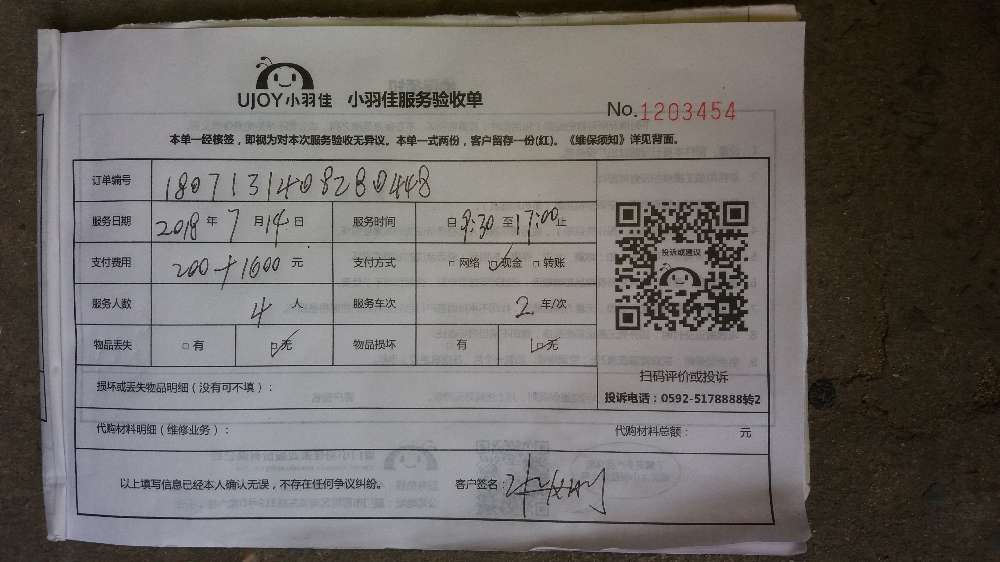 UJOY小羽佳 小羽佳服务验收单
No.1203454
本单一经核签，即视为对本次服务验收无异议。本单一式两份，客户留存一份(红)。《维保须知》详见背面。
订单编号 1807131408280448
服务日期 2018年7月14日 服务时间 自9:30至17:00止
支付费用 200+1600元 支付方式 □网络 ☑现金 □转账
投诉或建议
服务人数 4人 服务车次 2车/次
物品丢失 □有 ☑无 物品损坏 □有 ☑无
扫码评价或投诉
损坏或丢失物品明细（没有可不填）：
投诉电话：0592-5178888转2
代购材料明细（维修业务）： 代购材料总额： 元
以上填写信息已经本人确认无误，不存在任何争议纠纷。 客户签名：